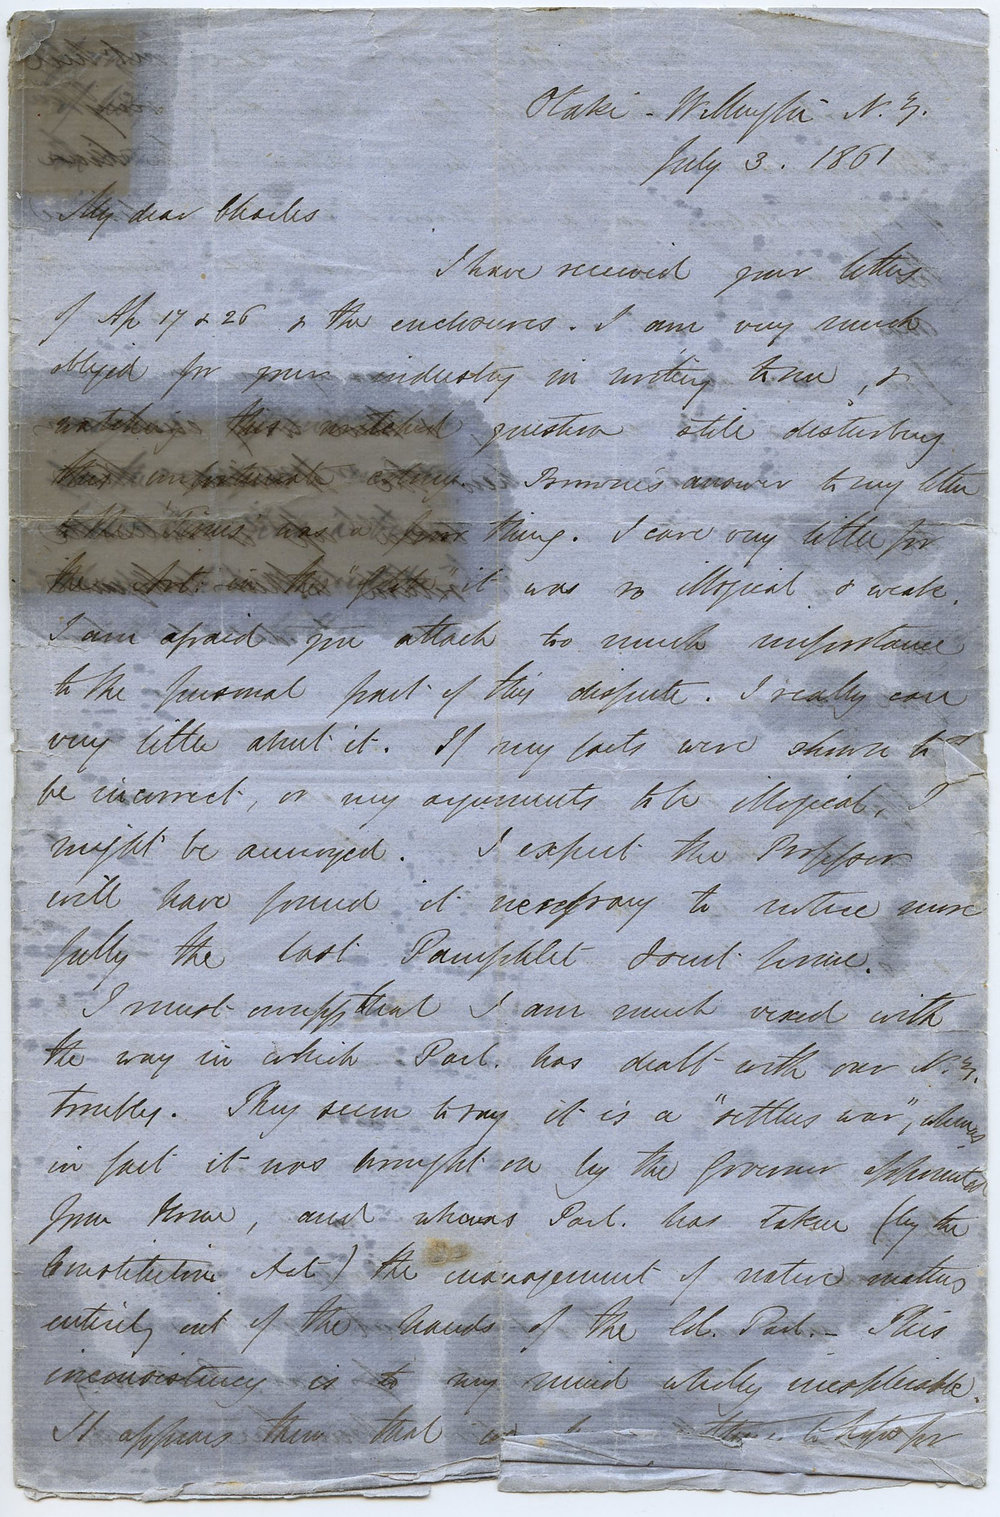 Otaki - Wellington N.Z.
July 3. 1861
My dear Charles
I have received your letters
of Ap 17 & 26 & the enclosures. I am very much
obliged for your industry in writing to me, &
watching this wretched question still disturbing
this unfortunate colony. Browne's answer to my letter
to the "Times" was a poor thing. I care very little for
the art. in the it was so illogical & weak.
I am afraid you attach too much importance
to the personal part of this dispute. I really care
very little about it. If my facts were shown to
be incorrect, or my arguments to be illogical, I
might be annoyed. I expect the Professor
will have found it necessary to notice more
fully the last Pamphlet I sent home.
I must confess that I am much vexed with
the way in which Parl. has dealt with our N.Z.
troubles. They seem to say it is a "settlers war", whereas
in fact it was brought on by the Governor appointed
from Home, and whereas Parl. has taken (by the
Constitution Act) the management of native matters
entirely out of the hands of the Col. Parl. - This
inconsistency is to my mind wholly inexplicable.
It appears then that to